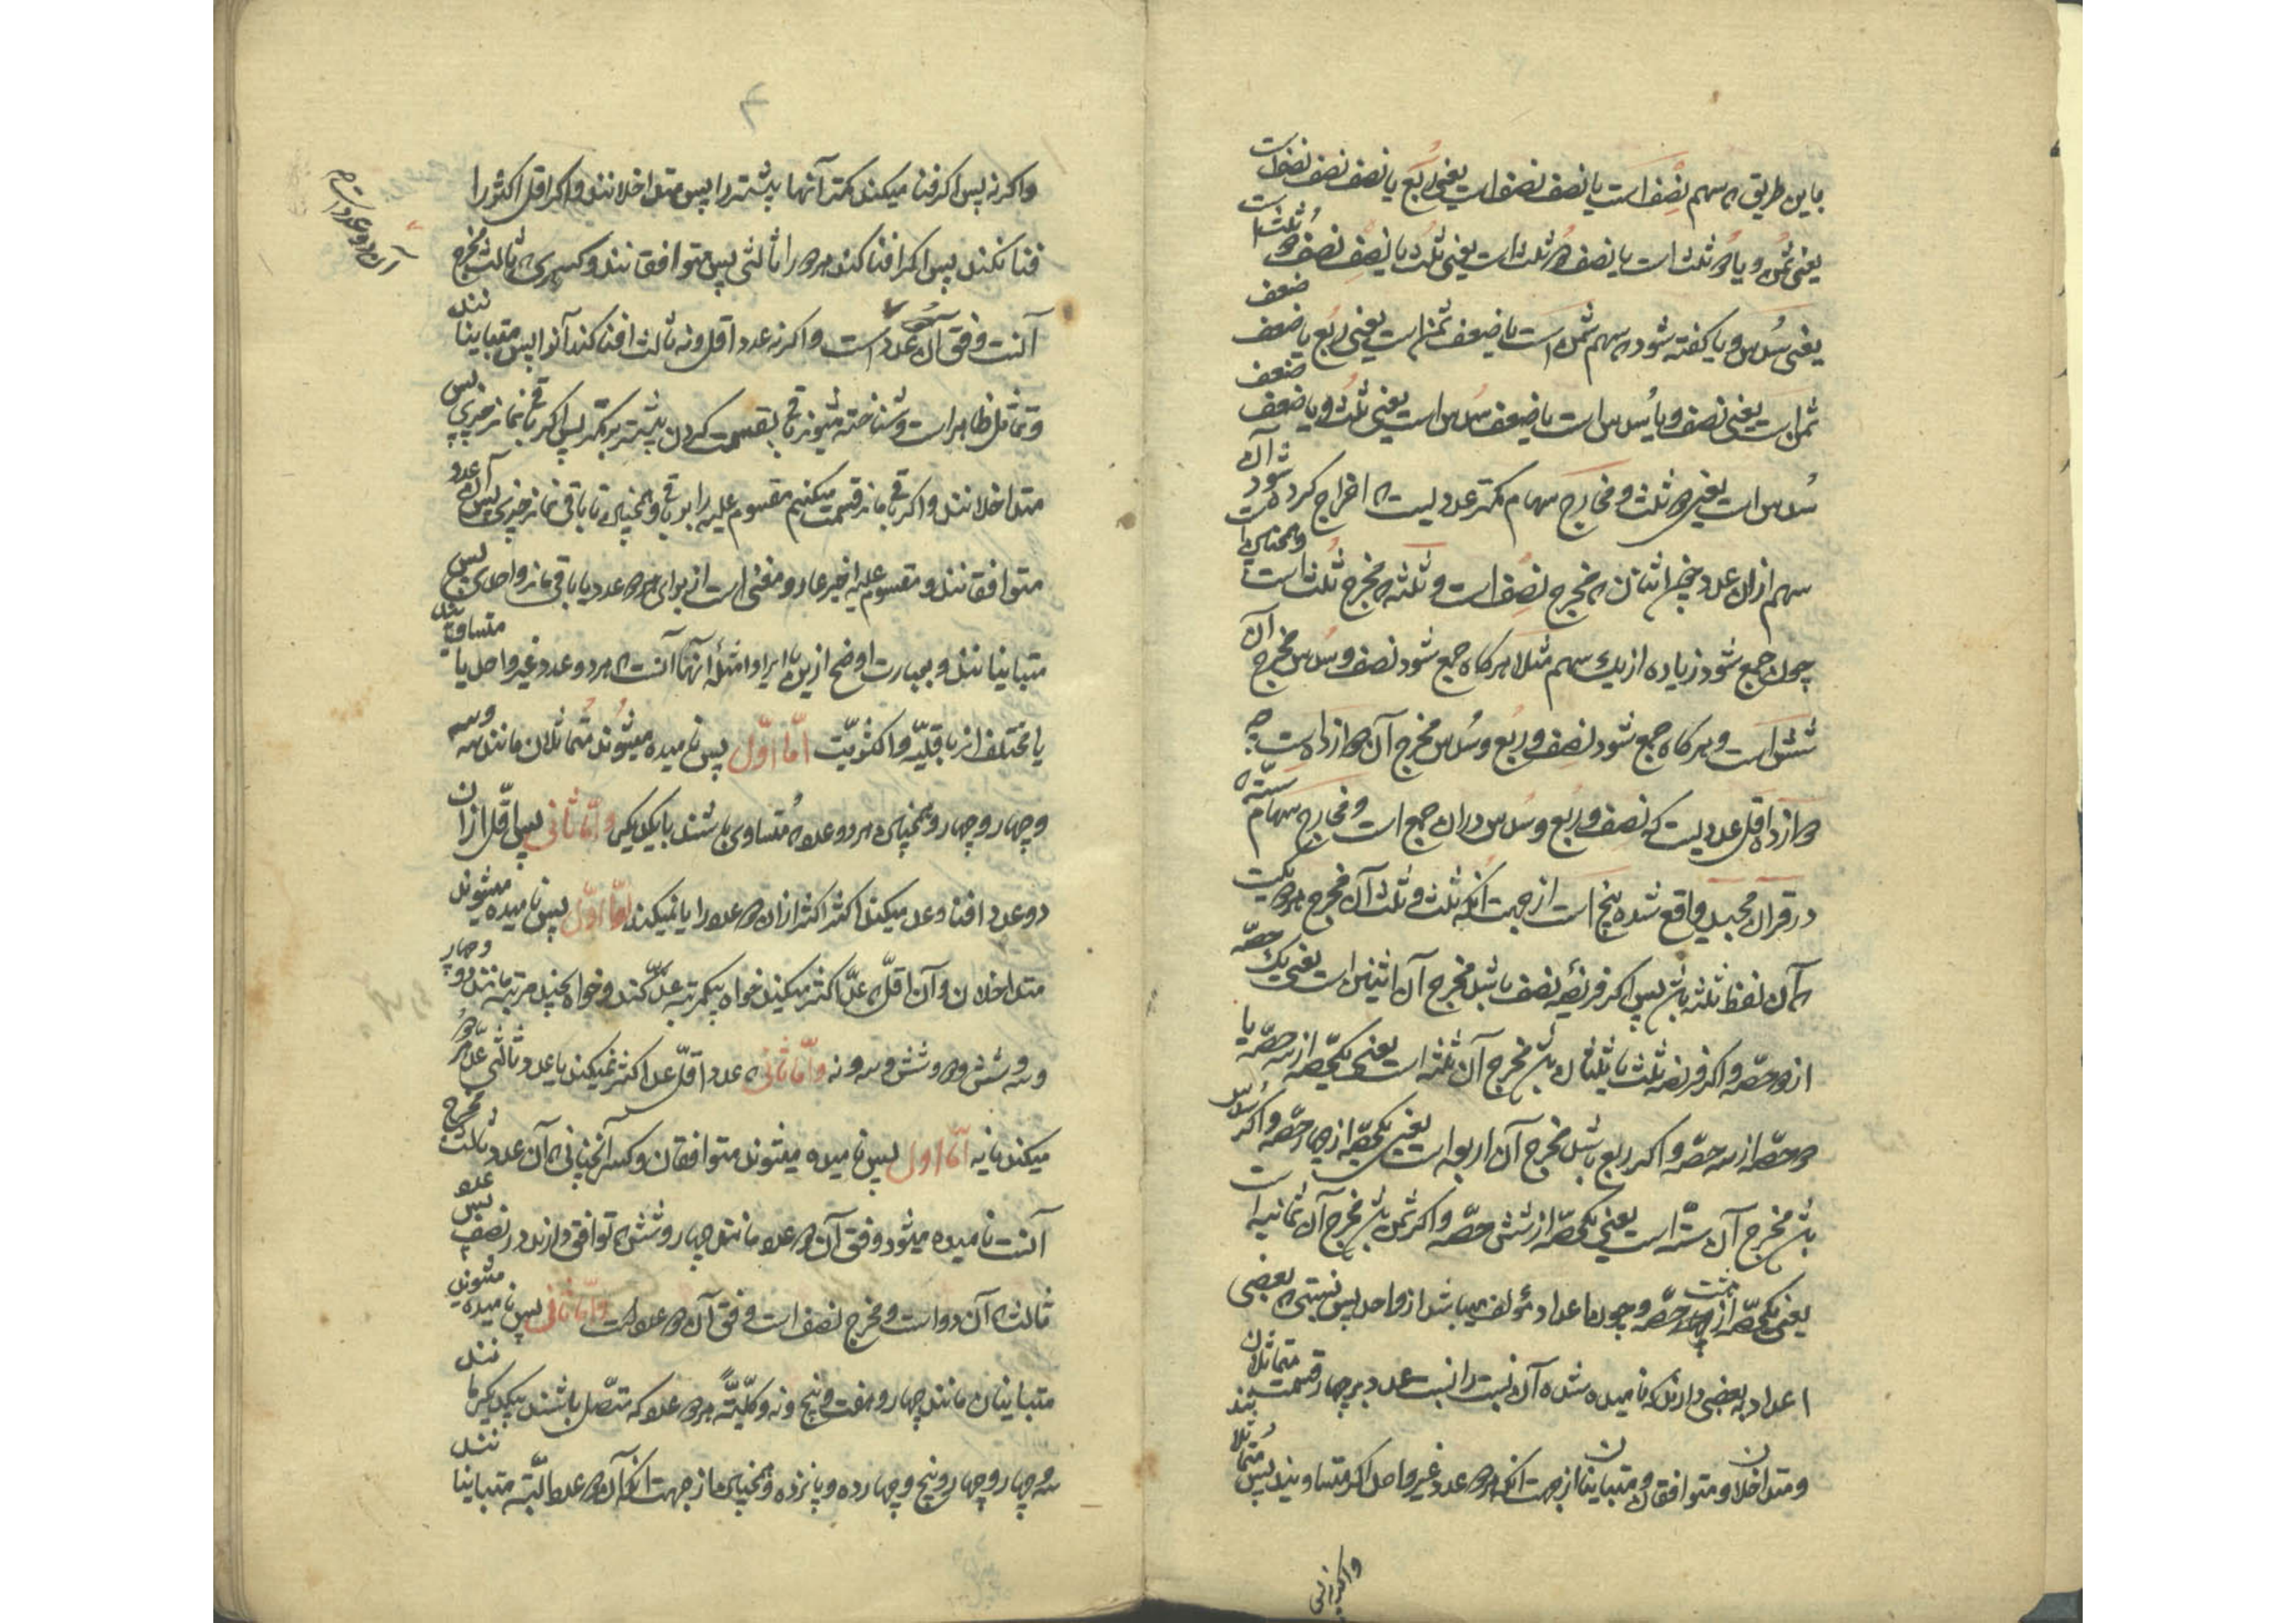 باین طریق که سهم نصف است یا نصف نصف است یعنی ربع یا نصف نصف نصف است
یعنی ثمن و یا دو ثلث است یا نصف دو ثلث است یعنی ثلث یا نصف نصف دو ثلث است
یعنی سدس و یا کفته شود که سهم ثمن است یا ضعف ثمن است یعنی ربع یا ضعف ضعف
ثمن است یعنی نصف و یا سدس است یا ضعف سدس است یعنی ثلث و یا ضعف ضعف
سدس است یعنی دو ثلث و مخارج سهام کمتر عددیست که اخراج کرده شود آن
سهم ازان عدد چون اثنان که مخرج نصف است و ثلثه که مخرج ثلث است و همچنان
چون جمع شود زیاده از یک سهم مثلا هرکاه جمع شود نصف و سدس مخرج آن
شش است و هرکاه جمع شود نصف و ربع و سدس مخرج آن دوازده است چه
دوازده اقل عددیست که نصف و ربع و سدس دران جمع است و مخارج سهام ستّه که
در قرآن مجید واقع شده پنج است از جهت انکه ثلث و ثلثان مخرج هر دو یکیست
که آن لفظ ثلثه باشد پس اکر فریضه نصف باشد مخرج آن اثنین است یعنی یک حصّه
از دو حصّه و اکر فرض ثلث یا ثلثان باشد مخرج آن ثلثه است یعنی یکحصّه از سه حصّه یا
دو حصّه از سه حصّه و اکر ربع باشد مخرج آن اربعه است یعنی یکحصّه از چهار حصّه و اکر سدس
باشد مخرج آن ستّه است یعنی یکحصّه از شش حصّه و اکر ثمن باشد مخرج آن ثمانیه است
یعنی یکحصّه از هشت حصّه و چون اعداد مؤلف میباشد از واحد پس نسبتی که بعضی
اعداد به بعضی دارند که نامیده شده آن نسبت را نسبت عدد بر چهار قسمت بند متماثلان
و متداخلان و متوافقان و متباینان از جهت انکه هر دو عدد غیر واحد اکر متساویند پس متماثلا
واکر نه پس
واکر نه پس اکر فنا میکند کمتر آنها بیشتر را پس متداخلانند و اکر اقل اکثر را
فنا نکند پس اکر افنا کند هر دو را ثالثی پس متوافقانند و کسری که ثالث مخرج
آنست وفق آن عدد است و اکر نه عدد اقل و نه ثالث افنا کند آنرا پس متباینانند
و تماثل ظاهر است و شناخته میشوند باقی بقسمت کردن بیشتر بر کمتر پس اکر باقی نماند چیزی پس
متداخلانند و اکر باقی ماند قسمت میکنیم مقسوم علیه را بر باقی و همچنین تا باقی نماند چیزی پس آن عدد
متوافقانند و مقسوم علیه اخیر عاد و مفنی است از برای هر دو عدد یا باقی ماند واحدی پس
متباینانند و بعبارت اوضح ازین با ایراد امثله آنها آنست که هر دو عدد غیر واحد یا متساویند
یا مختلف اند باقلّیّه و اکثریّت امّا اوّل پس نامیده میشوند متماثلان مانند سه و سه
و چهار و چهار و همچنین هر دو عدد که متساوی باشند با یکدیکر و امّا ثانی پس اقلّ ازان
دو عدد افنا و عد میکند اکثر ازان دو عدد را یا نمیکند امّا اوّل پس نامیده میشوند
متداخلان و آن اقلّ که عدّ اکثر میکند خواه بیکمرتبه عدّ کند و خواه بچند مرتبه مانند دو و چهار
و سه و شش و دو و شش و سه و نه و امّا ثانی که عدد اقلّ عد اکثر نمیکند یا عدد ثالثی عدّ هر دو
میکند یا نه امّا اول پس نامیده میشوند متوافقان و کسر آنچنانی که آن عدد ثالث مخرج
آنست نامیده میشود وفق آن دو عدد مانند چهار و شش که توافق دارند در نصف پس عدد
ثالث که آن دو است و مخرج نصف است وفق آن دو عدد است و امّا ثانی پس نامیده میشوند
متباینان مانند چهار و هفت و پنج و نه و کلّیّةً هر دو عدد که متصل باشند بیکدیکر مانند
سه و چهار و چهار و پنج و چهارده و پانزده و همچنین از جهت انکه آن دو عدد البتّه متباینانند